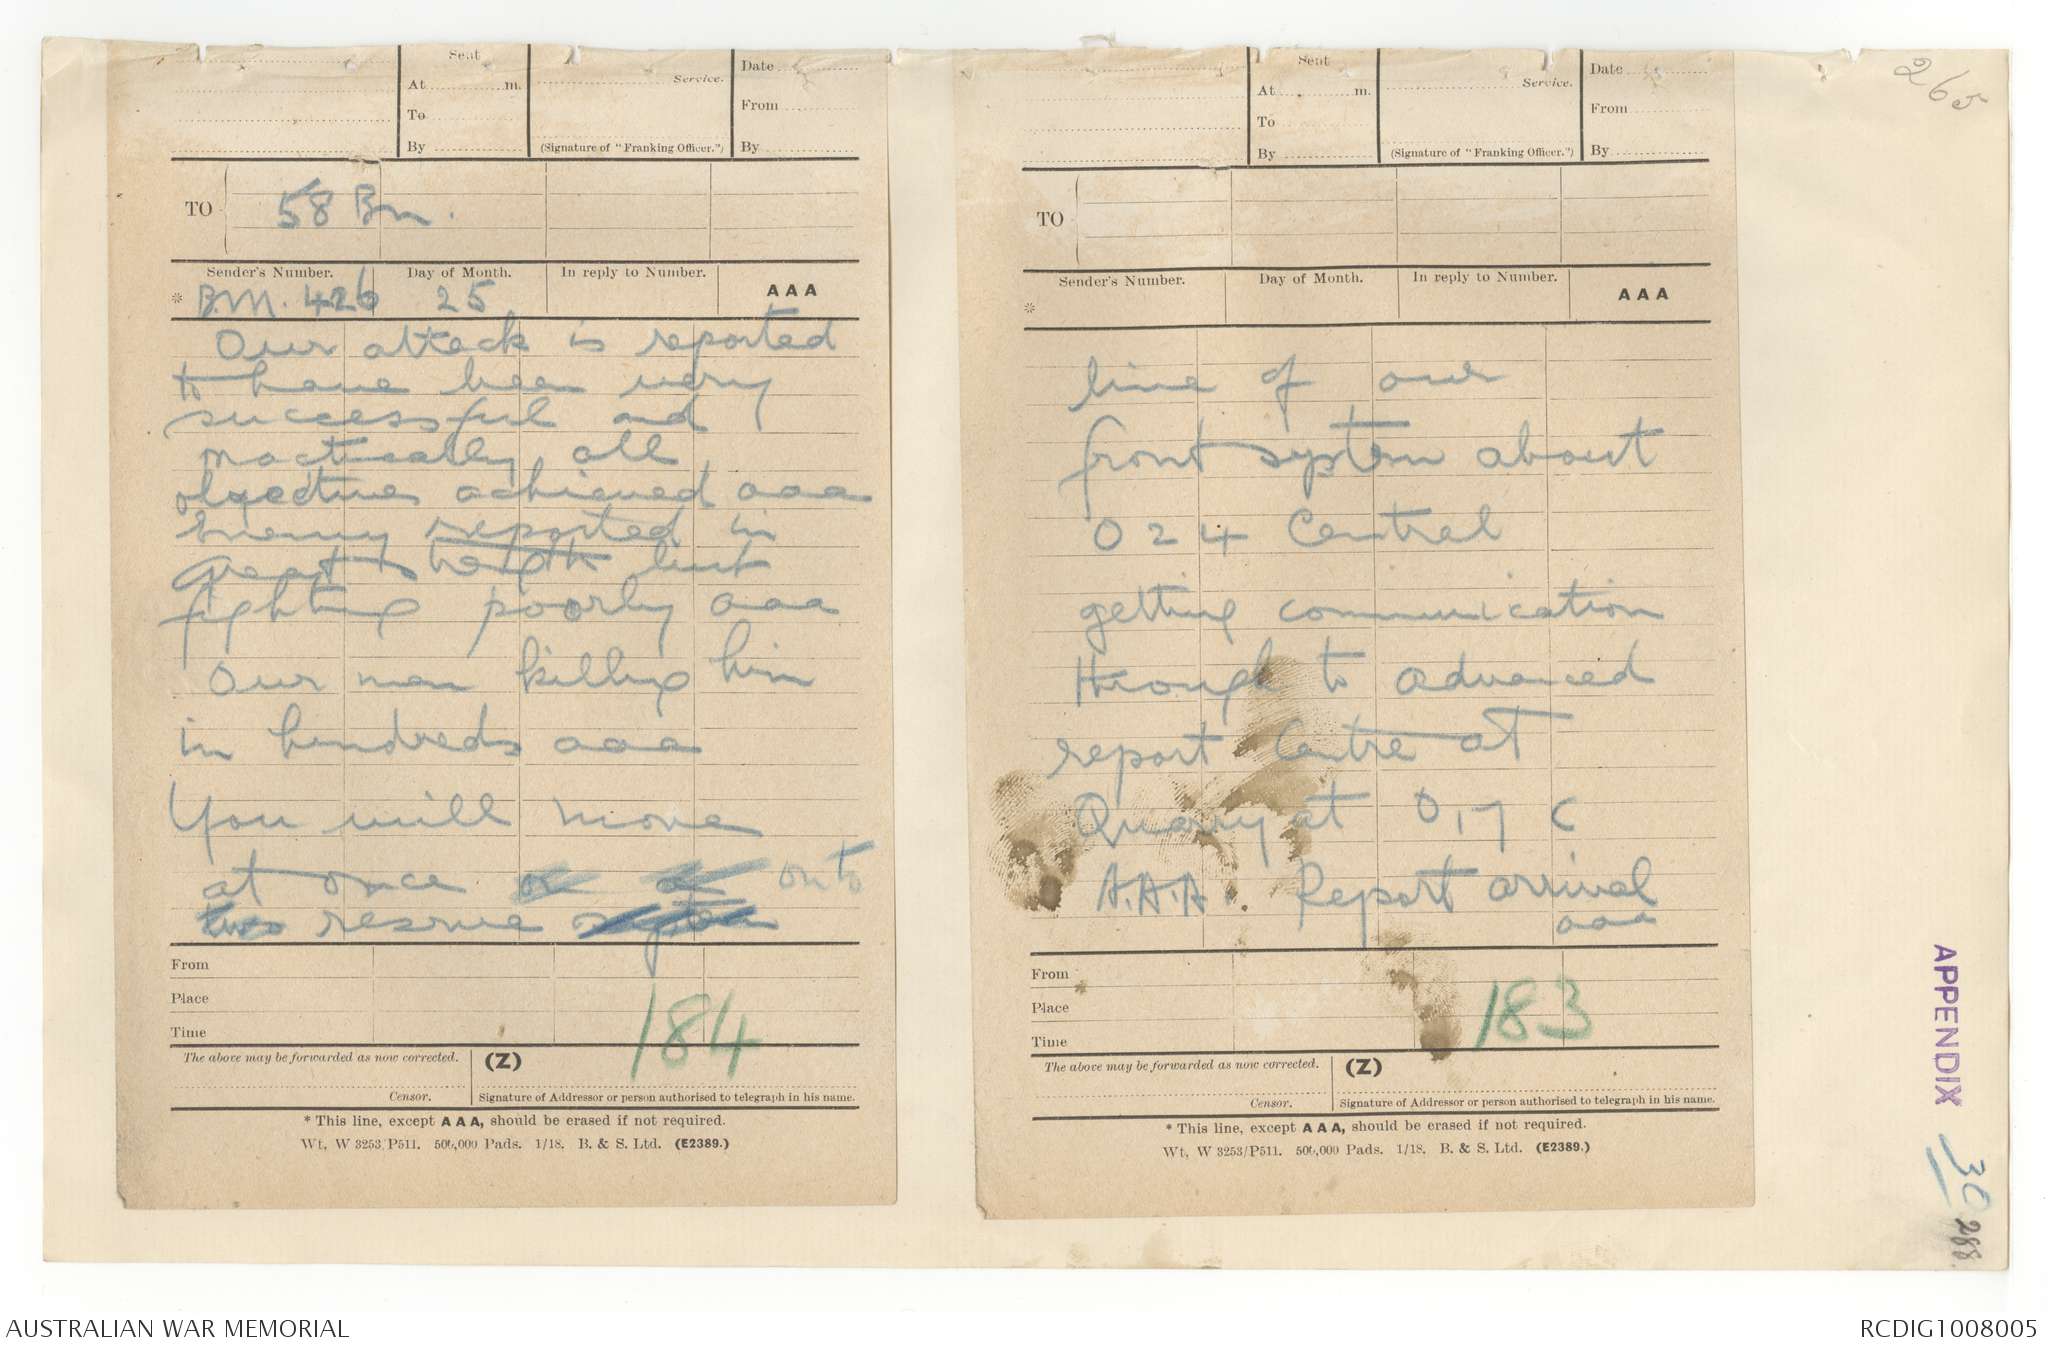 Sent
At m.
To
By
Service.
(Signature of "Franking Officer.")
Date
From
By
TO 58 Bn.
Sender's Number. Day of Month. In reply to Number. AAA
* B.M. 426 25
Our attack is reported
to have been very
successful and
practically all
objectives achieved aaa
Enemy reported in
great but
fighting poorly aaa
Our men killing him
in hundreds aaa
You will move
at once onto
reserve
From
Place
Time
184
The above may be forwarded as now corrected. (Z)
Censor. Signature of Addressor or person authorised to telegraph in his name.
* This line, except AAA, should be erased if not required.
Wt. W 3253/P511. 500,000 Pads. 1/18. B. & S. Ltd. (E2389.)
Sent
At m.
To
By
Service.
(Signature of "Franking Officer.")
Date
From
By
TO
Sender's Number. Day of Month. In reply to Number. AAA
*
line of our
front system about
O 24 Central
getting communication
through to advanced
report Centre at
Quarry at O,17 C
A.A.A. Report arrival
aaa
From
Place
Time
183
The above may be forwarded as now corrected. (Z)
Censor. Signature of Addressor or person authorised to telegraph in his name.
* This line, except AAA, should be erased if not required.
Wt. W 3253/P511. 500,000 Pads. 1/18. B. & S. Ltd. (E2389.)
APPENDIX 30
288.
AUSTRALIAN WAR MEMORIAL
RCDIG1008005